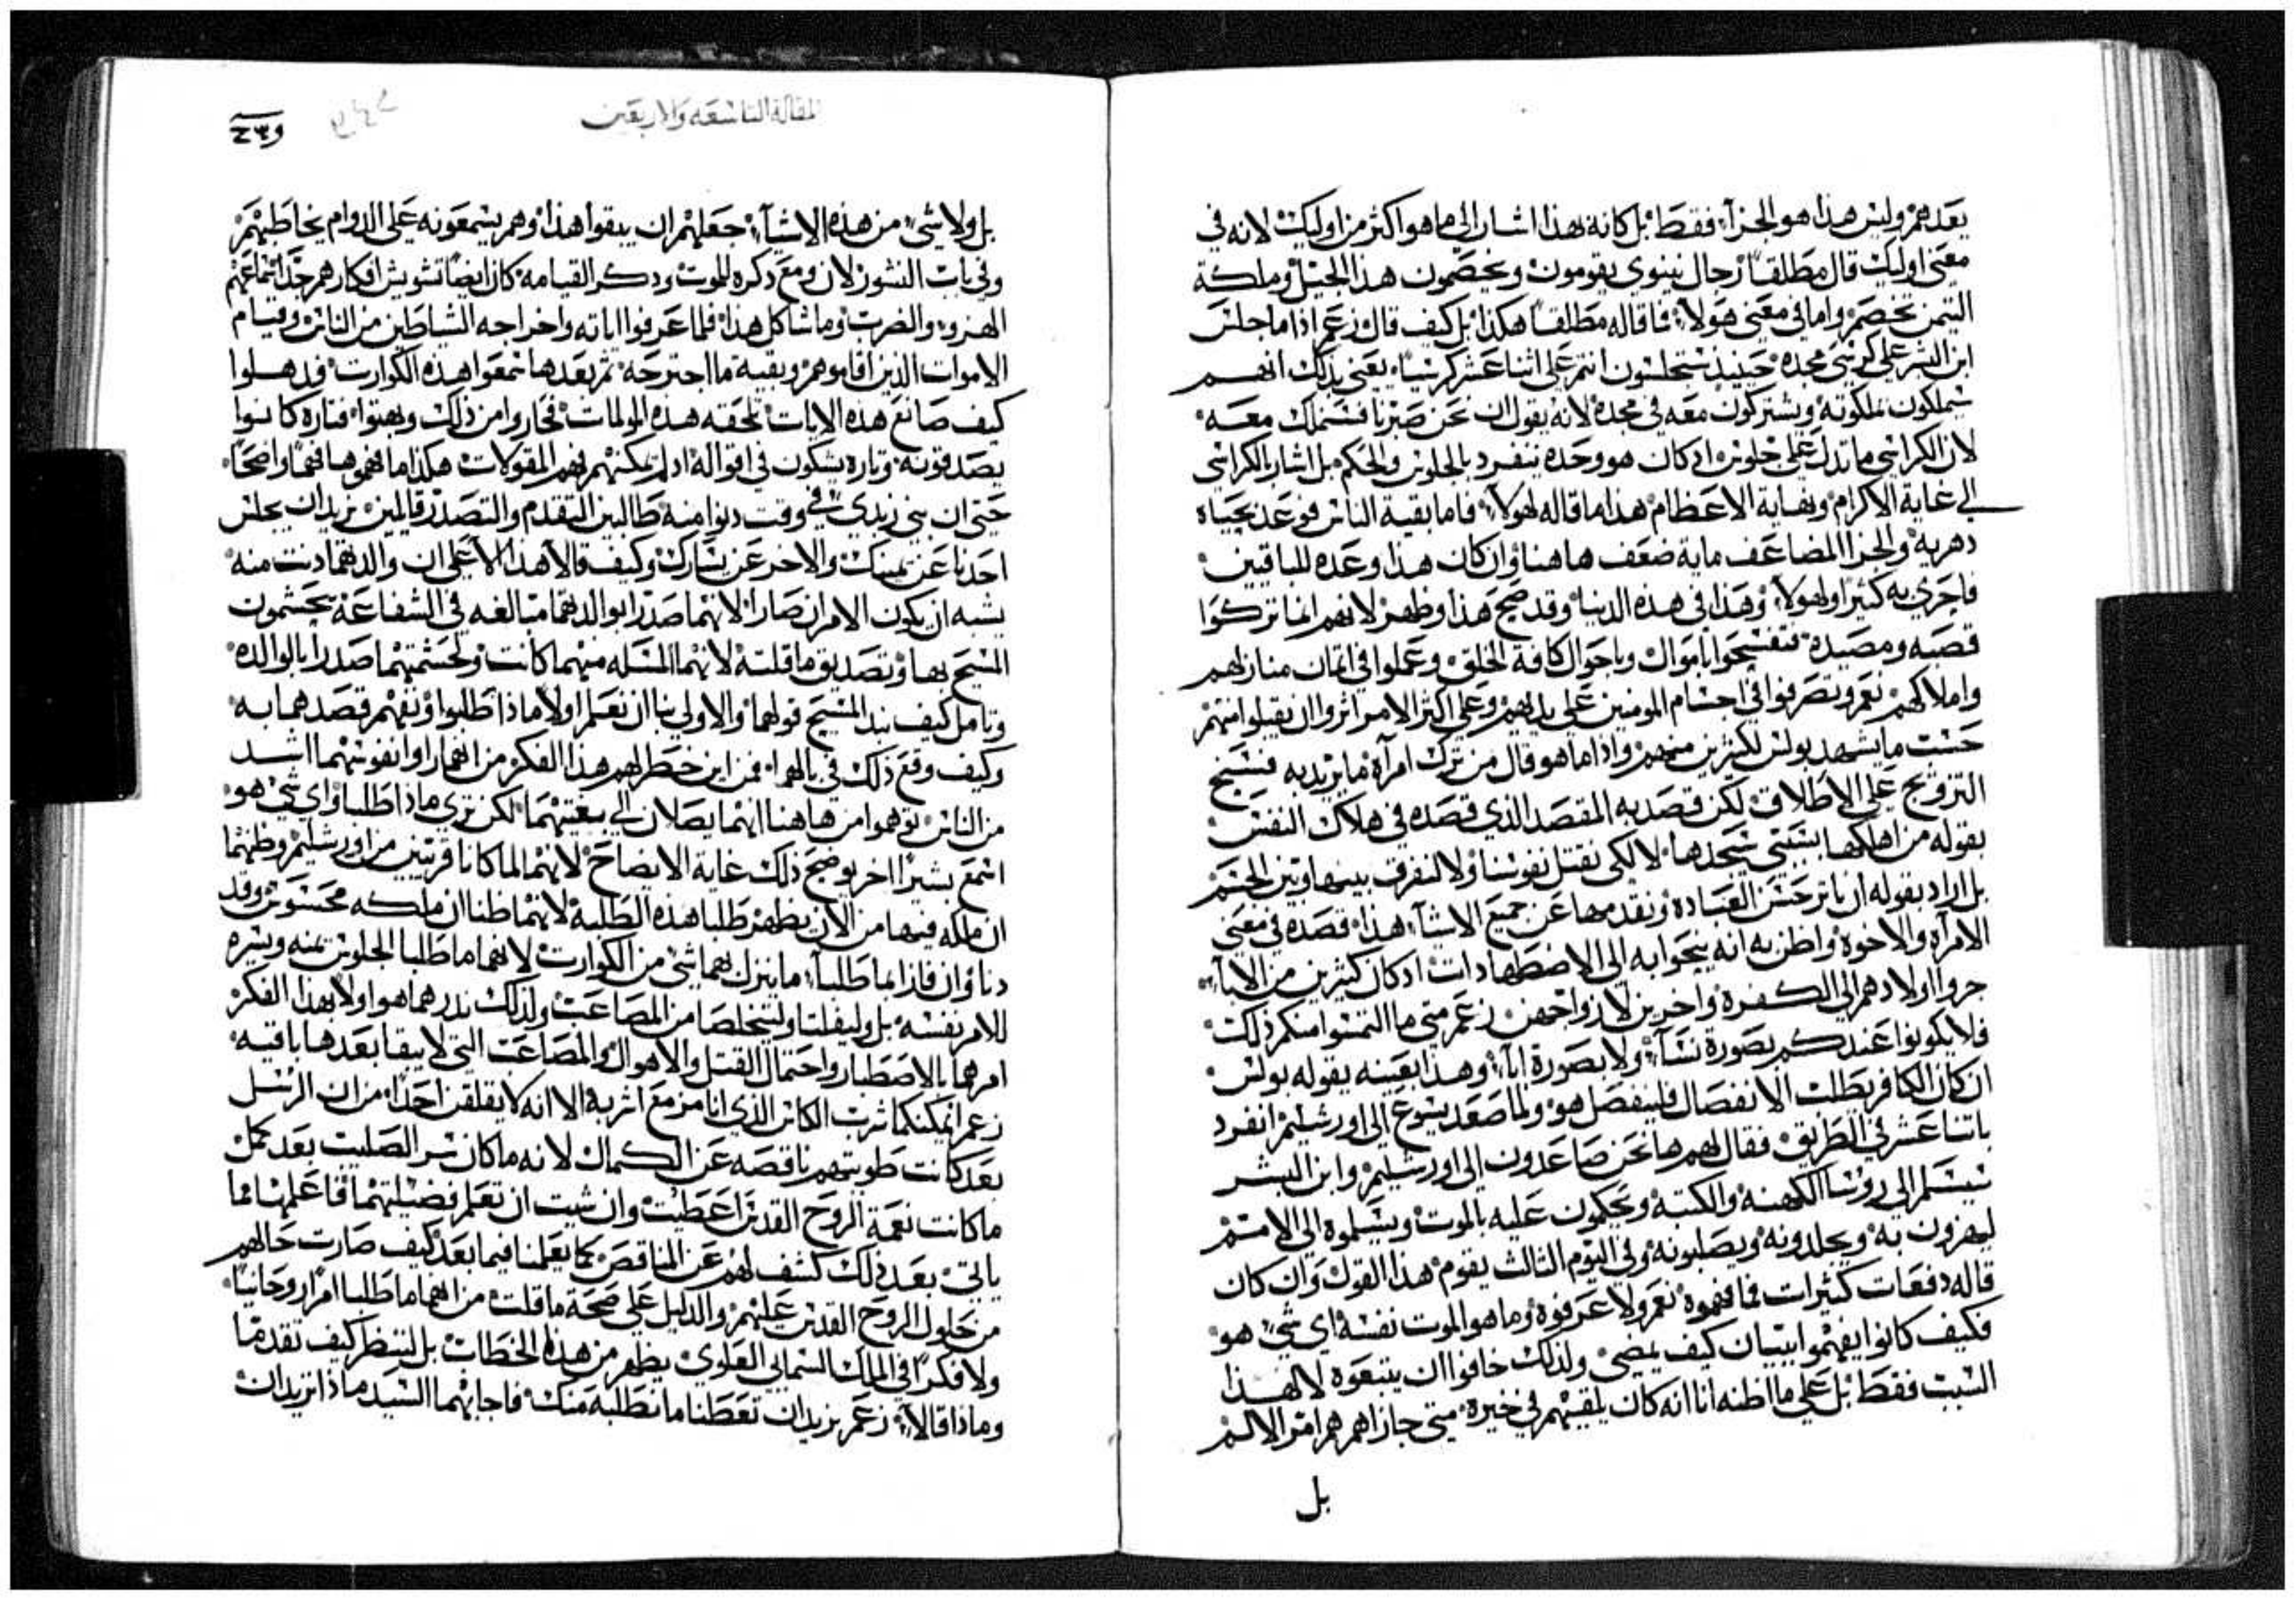 بعدهم وليس هذا هو الجزآء فقط بل كانه بهذا اشار الى ما هو اكثر من اوليك لانه في
معنى اوليك قال مطلقاً رجال نينوي يقومون ويخصمون هذا الجيل وملكة
التيمن تخصم واما في معنى هولاء فما قاله مطلقاً هكذا بل كيف قال زعم اذا ما جلس
ابن البشر على كرسي مجده حينيذ ستجلسون انتم على اثنا عشر كرسياً يعني بذلك انهم
سيملكون بملكوته ويشتركون معه في مجده لانه يقول ان نحن صبرنا فسنملك معه
لان الكراسي ما تدل على جلوس اذ كان هو وحده ينفرد بالجلوس والحكم بل اشار بالكراسي
الى غاية الاكرام ونهاية الاعظام هذا ما قاله لهولاء فاما بقية الناس فوعد بحياه
دهرية والجزا المضاعف ماية ضعف هاهنا وان كان هذا وعده للباقيين
فاحري به كثيرا ولهولاء وهذا في هذه الدنيا وقد صح هذا وظهر لانهم انما تركوا
قصبه ومصيده فتفسحوا باموال وباحوال كافة الخلق وعملوا في اثمان منازلهم
واملاكهم نعم وتصرفوا في اجسام المومنين على يديهم وعلى اكثر الامر اثروا ان يقبلوا منهم
حسب ما يشهد بولس لكثيرين منهم واذا ما هو قال من ترك امرآة ما يريد به فسخ
التزويج على الاطلاق لكن قصد به المقصد الذي قصده في هلاك النفس
بقوله من اهلكها بسببي سيجدها لا لكي نقتل نفوسنا ولا لنفرق بينها وبين الجسم
بل اراد بقوله ان ناثر حسن العباده ونقدمها عن جميع الاشياء هذا قصده في معنى
الامرآه والاخوة واظن به انه ينحوا به الى الاضطهادات اذ كان كثيرين من الابآء
جروا اولادهم الى الكفرة واخرين لازواجهن زعم متى ما التمسوا منكم ذلك
فلا يكونوا عندكم بصورة نسآء ولا بصورة ابآء وهذا بعينه يقوله بولس
ان كان الكافر يطلب الانفصال فلينفصل هو ولما صعد يسوع الى اورشليم انفرد
باثنا عشر في الطريق فقال لهم ها نحن صاعدون الى اورشليم وابن البشر
سيسلم الى روسا الكهنه والكتبه ويحكمون عليه بالموت ويسلموه الى الامم
ليهزون به ويجلدونه ويصلبونه وفي اليوم الثالث يقوم هذا القول وان كان
قاله دفعات كثيرات فما فهموه نعم ولا عرفوه وما هو الموت نفسه اي شي هو
فكيف كانوا يفهموا بيان كيف يمضي ولذلك خافوا ان يتبعوه لا لهذا
السبب فقط بل على ما اظنه انا انه كان يلقيهم في خيرة متى جازاهم هم امر الالم
بل
المقالة التاسعه والاربعين
بل ولا شي من هذه الاشيآء جعلهم ان يبقوا هذا وهم يسمعونه على الدوام يخاطبهم
وفي باب النشور لان ومع ذكره للموت وذكر القيامه كان ايضاً تشويش افكارهم جداً سماعهم
الهزو والضرب وما شاكل هذا فلما عرفوا اياته واخراجه الشياطين من الناس وقيام
الاموات الذين اقاموهم وبقية ما اجترحه ثم بعدها سمعوا هذه الكوارث فذهلوا
كيف صانع هذه الايات تلحقه هذه المولمات فحاروا من ذلك وبهتوا فتاره كانوا
يصدقونه وتاره يشكون في اقواله اذ لم يمكنهم فهم المقولات هكذا ما فهموها فهماً واضحاً
حتى ان بني زبدي في وقت دنوا منه طالبين التقدم والتصدر قايلين نريد ان يجلس
احدنا عن يمينك والاخر عن يسارك وكيف قالا هذا الا على ان والدتهما دنت منه
يشبه ان يكون الامران صارا لانهما صدرا بوالدتهما مبالغه في الشفاعة يحتشمون
المسيح بها وتصديق ما قلته لانهما المسله منهما كانت ولحشمتهما صدرا بالوالده
وتامل كيف نبذ المسيح قولهما والاولي بنا ان نعلم اولاً ماذا طلبوا ونفهم قصدهما به
وكيف وقع ذلك في بالهما فمن اين خطر لهم هذا الفكر من انهما راوا نفوسهما اشد
من الناس توهموا من هاهنا انهما يصلان الى بغيتهما لكن تري ماذا طلبا واي شي هو
اسمع بشيرا اخر يوضح ذلك غاية الايضاح لانهما لما كانا قريبين من اورشليم وظنهما
ان ملكه فيها من الان يظهر طلبا هذه الطلبه لانهما ظنا ان ملكه محسوس وقد
دنا وان فازا بما طلبآ ما ينزل بهما شي من الكوارث لانهما ما طلبا الجلوس يمنه ويسره
للامر نفسه بل وليفلتا وليتخلصا من المصاعب ولذلك بدرهما هو اولا بهذا الفكر
امرهما بالاصطبار واحتمال القتل والاهوال والمصاعب التي لا يبقا بعدها باقيه
زعم ايمكنكما شرب الكاس الذي انا مزمع اشربه الا انه لا يقلقن احداً من ان الرسل
بعد كانت طويتهم ناقصه عن الكمال لانه ما كان سر الصليب بعد كمل
ما كانت نعمة الروح القدس اعطيت وان شيت ان تعلم فضيلتهما فاعلمها مما
ياتي بعد ذلك كشف لهم عن الناقص كما يعلمنا فيما بعد كيف صارت حالهم
من حلول الروح القدس عليهم والدليل على صحة ما قلت من انهما ما طلبا امراً روحانياً
ولا فكرا في الملك السمالي العلوي يظهر من هذه الخطاب بل لننظر كيف تقدما
وماذا قالآ زعم نريد ان تعطنا ما نطلبه منك فاجابهما السيد ماذا تريدان